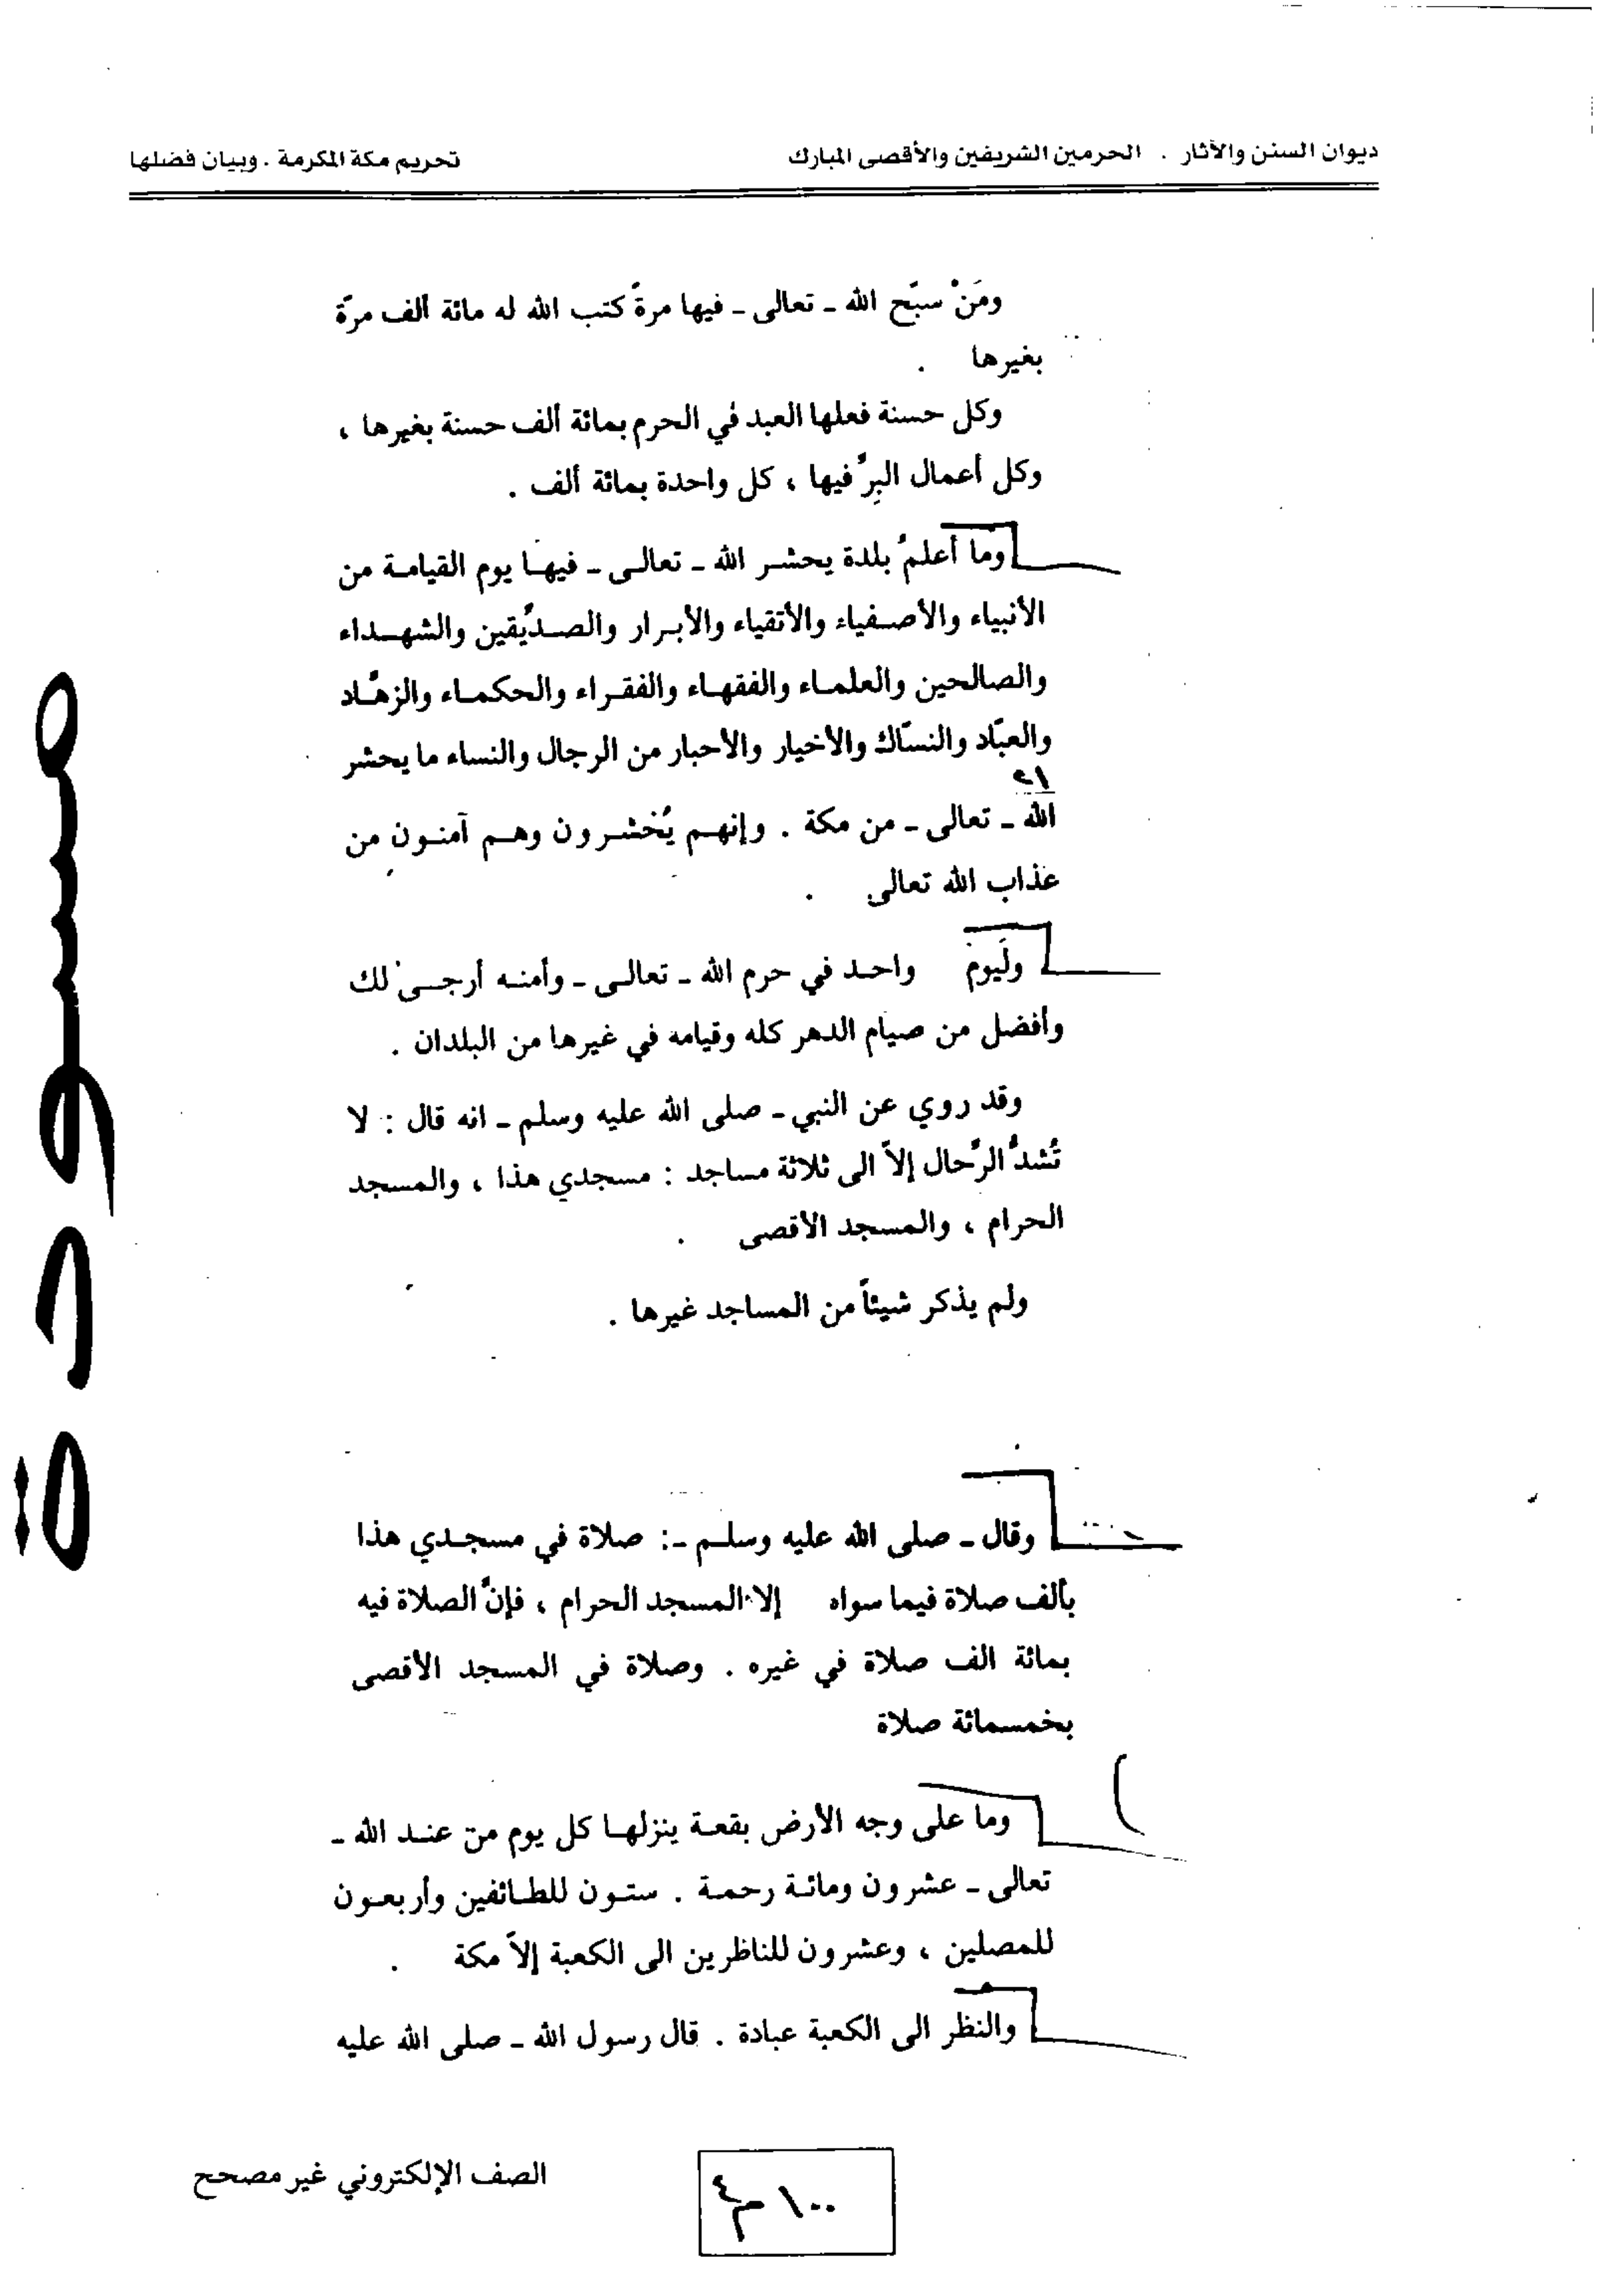 ديوان السنن والآثار . الحرمين الشريفين والأقصى المبارك
تحريم مكة المكرمة . وبيان فضلها
ومَنْ سبّح الله ـ تعالى ـ فيها مرةً كتب الله له مائة ألف مرّة
بغيرها .
وكل حسنة فعلها العبد في الحرم بمائة ألف حسنة بغيرها ،
وكل أعمال البِرّ فيها ، كل واحدة بمائة ألف .
وما أعلمُ بلدة يحشر الله ـ تعالى ـ فيها يوم القيامة من
الأنبياء والأصفياء والأتقياء والأبرار والصدّيقين والشهداء
والصالحين والعلماء والفقهاء والفقراء والحكماء والزهّاد
والعبّاد والنسّاك والأخيار والأحبار من الرجال والنساء ما يحشر
الله ـ تعالى ـ من مكة . وإنهم يُخشرون وهم آمنون من
عذاب الله تعالى .
ولَيوم واحد في حرم الله ـ تعالى ـ وأمنه أرجى لك
وأفضل من صيام الدهر كله وقيامه في غيرها من البلدان .
وقد روي عن النبي ـ صلى الله عليه وسلم ـ انه قال : لا
تُشدُّ الرّحال إلاّ الى ثلاثة مساجد : مسجدي هذا ، والمسجد
الحرام ، والمسجد الأقصى .
ولم يذكر شيئاً من المساجد غيرها .
وقال ـ صلى الله عليه وسلم ـ: صلاة في مسجدي هذا
بألف صلاة فيما سواه إلا المسجد الحرام ، فإنّ الصلاة فيه
بمائة الف صلاة في غيره . وصلاة في المسجد الأقصى
بخمسمائة صلاة
وما على وجه الأرض بقعة ينزلها كل يوم من عند الله ـ
تعالى ـ عشرون ومائة رحمة . ستون للطائفين وأربعون
للمصلين ، وعشرون للناظرين الى الكعبة إلاّ مكة .
والنظر الى الكعبة عبادة . قال رسول الله ـ صلى الله عليه
مسودة
١٠٠ م٤
الصف الإلكتروني غير مصحح